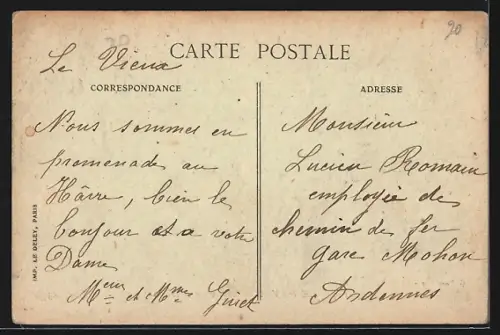 20
CARTE POSTALE
Le Vieux
CORRESPONDANCE
Nous sommes en
promenade au
Hâvre, bien le
bonjour et a votre
Dame
Meur et Mme
ADRESSE
Monsieur
Lucien Romain
employé de
chemin de fer
gare Mohon
Ardennes
IMP. LE DELEY, PARIS